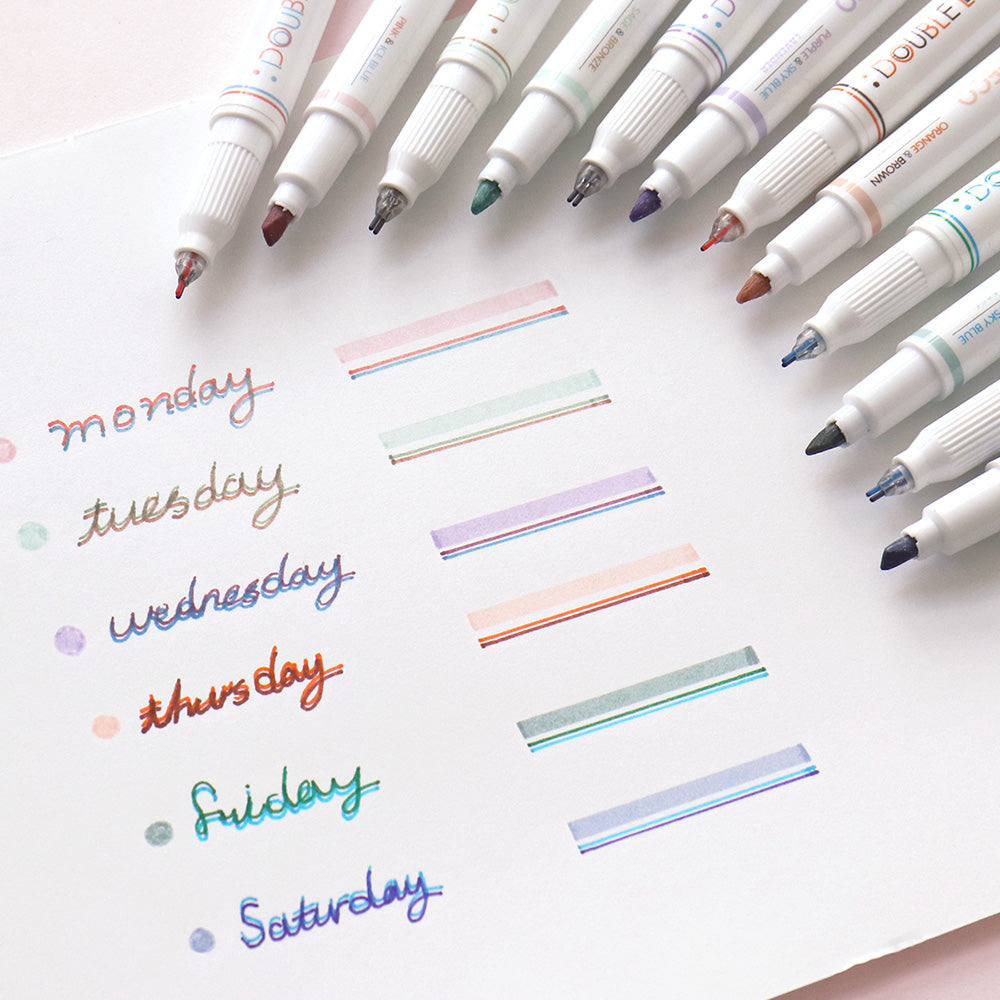 :DOUB
PINK & ICE BLUE
:DOUB
SAGE & BRONZE
:D
PURPLE & SKY BLUE
LAVENDER
:DOUBLE
DECO
ORANGE & BROWN
:DO
SKY BLUE
monday
tuesday
wednesday
thursday
friday
Saturday